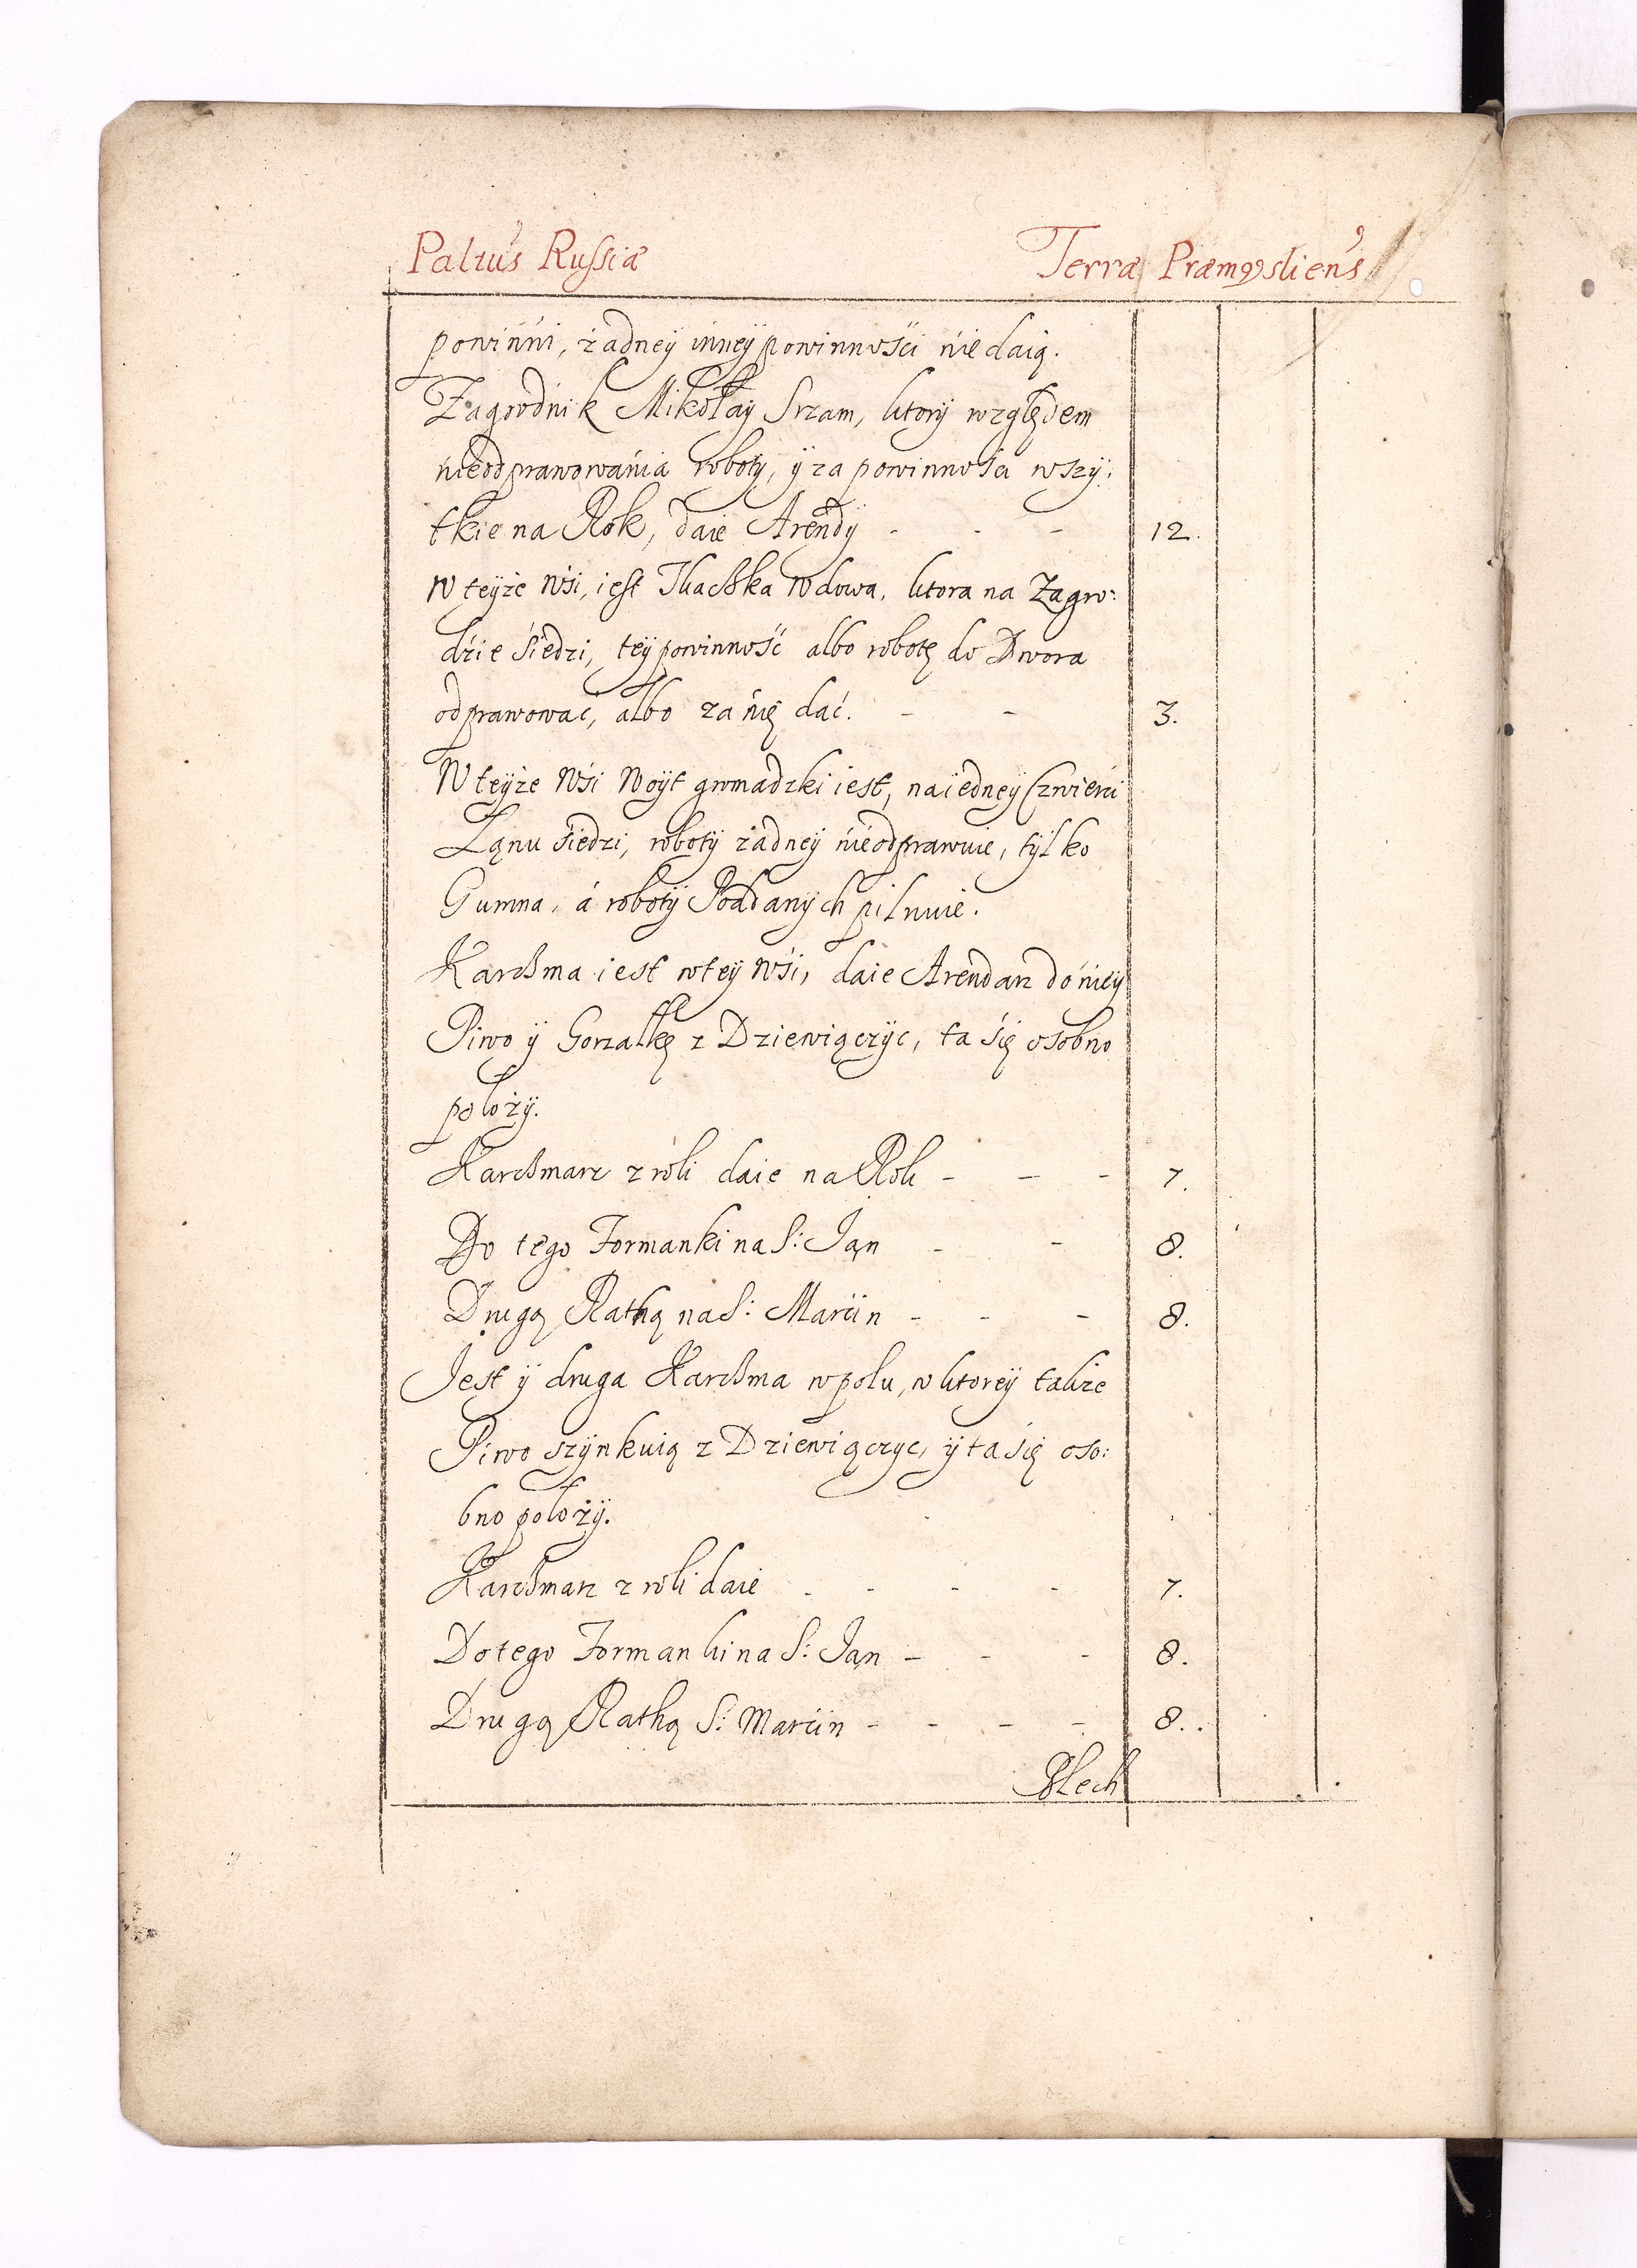 Palnús Russiæ Terræ Præmysliens
powinni, żadneÿ inneÿ powinnośći nie daią.
Zagrodnik Mikołaÿ Srzam, ktorÿ względem
nieodprawowánia robotÿ, ÿ za powinnośći wszÿ:
tkie na Rok, daie Arendÿ - - - 12.
W teÿże Wśi, iest Tkaczka Wdowa, ktora na Zagro:
dźie śiedzi, teÿ powinność albo robotę do Dwora
odprawować, albo za nię dać. - - 3.
W teÿże Wśi Woÿt gromadzki iest, na iedneÿ Czwierći
Łanu śiedzi, robotÿ żadneÿ nieodprawuie, tÿlko
Gumna, á robotÿ Poddanÿch pilnuie.
Karczma iest w teÿ Wśi, daie Arendarz do nieÿ
Piwo ÿ Gorzałkę z Dziewięczÿc, ta śię osobno
położÿ.
Karczmarz z roli daie na Rok - - - 7.
Do tego Formanki na S: Jan - - 8.
Drugą Rathą na S: Marćin - - - 8.
Jest ÿ druga Karczma w polu, w ktoreÿ także
Piwo szÿnkuią z Dziewięczyc, ÿ ta śię oso:
bno położÿ.
Karczmarz z roli daie - - - - 7.
Do tego Formanki na S: Jan - - - 8.
Drugą Rathą S: Marćin - - - - 8.
Blech